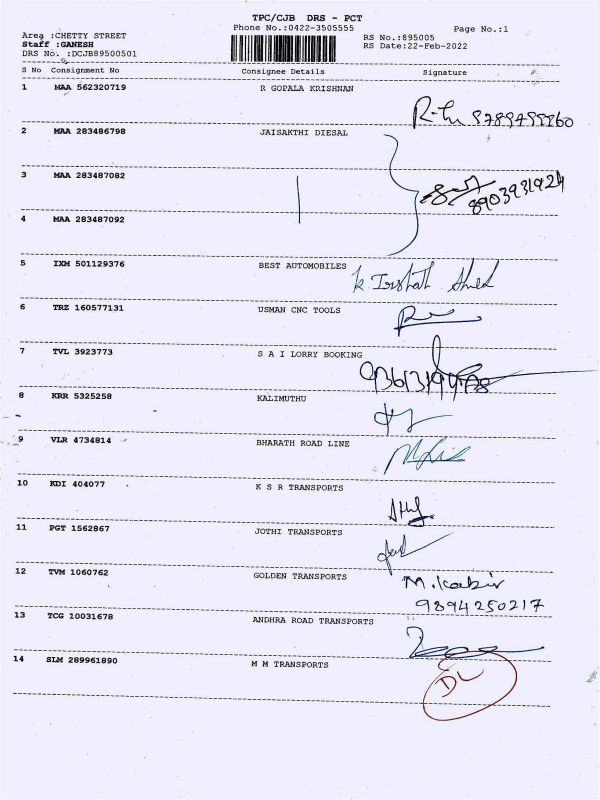 TPC/CJB DRS - PCT
Phone No.:0422-3505555 Page No.:1
Area :CHETTY STREET RS No.:895005
Staff :GANESH RS Date:22-Feb-2022
DRS No. :DCJB89500501
S No Consignment No Consignee Details Signature
1 MAA 562320719 R GOPALA KRISHNAN
2 MAA 283486798 JAISAKTHI DIESAL
3 MAA 283487082
8903931924
4 MAA 283487092
5 IXM 501129376 BEST AUTOMOBILES
6 TRZ 160577131 USMAN CNC TOOLS
7 TVL 3923773 S A I LORRY BOOKING
8 KRR 5325258 KALIMUTHU
9 VLR 4734814 BHARATH ROAD LINE
10 KDI 404077 K S R TRANSPORTS
11 PGT 1562867 JOTHI TRANSPORTS
12 TVM 1060762 GOLDEN TRANSPORTS M. Kabir
9894250217
13 TCG 10031678 ANDHRA ROAD TRANSPORTS
14 SLM 289961890 M M TRANSPORTS DL